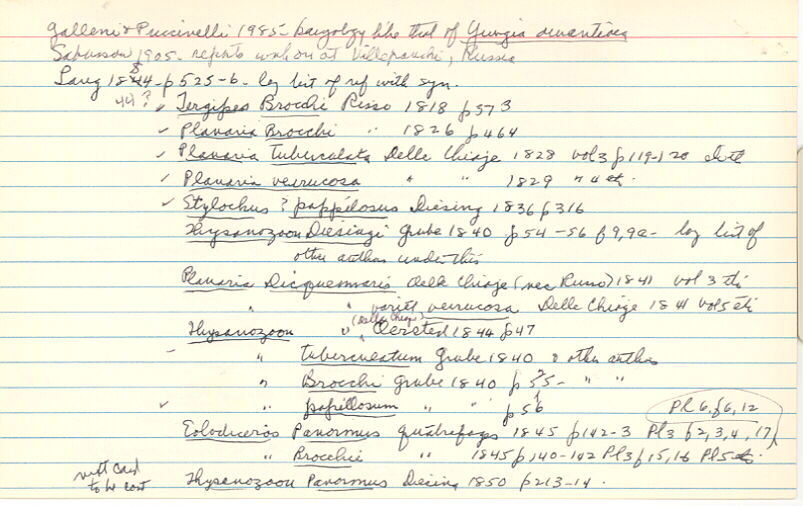 Galleni & Puccinelli 1985 - karyology like that of Yungia aurantiaca
Sabussow 1905 - reports work on at Villefranche, Russia
Lang 1884 - p 525-6 - log list of ref with syn.
44 ? ✓ Tergipes Brocchi Risso 1818 p373
✓ Planaria Brocchi " 1826 p464
✓ Planaria tuberculata Delle Chiaje 1828 vol3 p119-120 etc
✓ Planaria verrucosa " " 1829 " 4 etc.
✓ Stylochus ? pappilosus Diesing 1836 p316
Thysanozoon Diesingi Grube 1840 p54-56 f9,9a - log list of
other authors under this
Planaria Dicquemaris delle Chiaje (nec Risso) 1841 vol 3 etc
" " variett verrucosa Delle Chiaje 1841 vol5 etc
(delle Chiaje)
Thysanozoon " Oersted 1844 p47
– " tuberculatum Grube 1840 & other authors
" Brocchi Grube 1840 p55- " "
✓ " papillosum " " p56
Pl 6, f6, 12
Eolodiceros Panormus Quatrefages 1845 p142-3 Pl3 f2,3,4,17,
" Brocchii " 1845 p140-142 Pl3 f15,16 Pl5
next card
to be cont Thysanozoon Panormus Diesing 1850 p213-14.